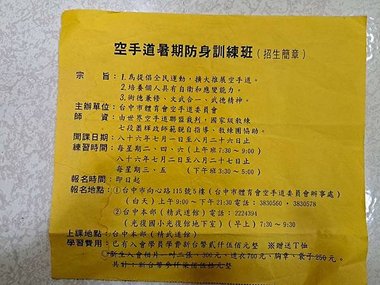 空手道暑期防身訓練班（招生簡章）
宗　　旨：1.為提倡全民運動，擴大推展空手道。
2.培養個人具有自衛和應變能力。
3.術德兼修、文武合一、武德精神。
主辦單位：台中市體育會空手道委員會
師　　資：由世界空手道聯盟裁判，國家級教練
七段蕭輝政師範親自指導，教練團協助。
開課日期：八十六年七月一日至八月二十六日止
練習時間：每星期二、四、六（上午班7:30～9:00）
八十六年七月二日至八月二十七日止
每星期三、五　　（下午班3:30～5:00）
報名時間：即日起
報名地點：①台中市向心路115號5樓（台中市體育會空手道委員會辦事處）
（白天）上午9:00～下午21:30電話：3830560・3830578
②台中本部（精武道館）電話：2224394
（光復國小光復館地下室）（早上）7:30～9:30
上課地點：台中本部（精武道館）
學習費用：已有入會學員學費新台幣貳仟伍佰元整　※贈送T恤